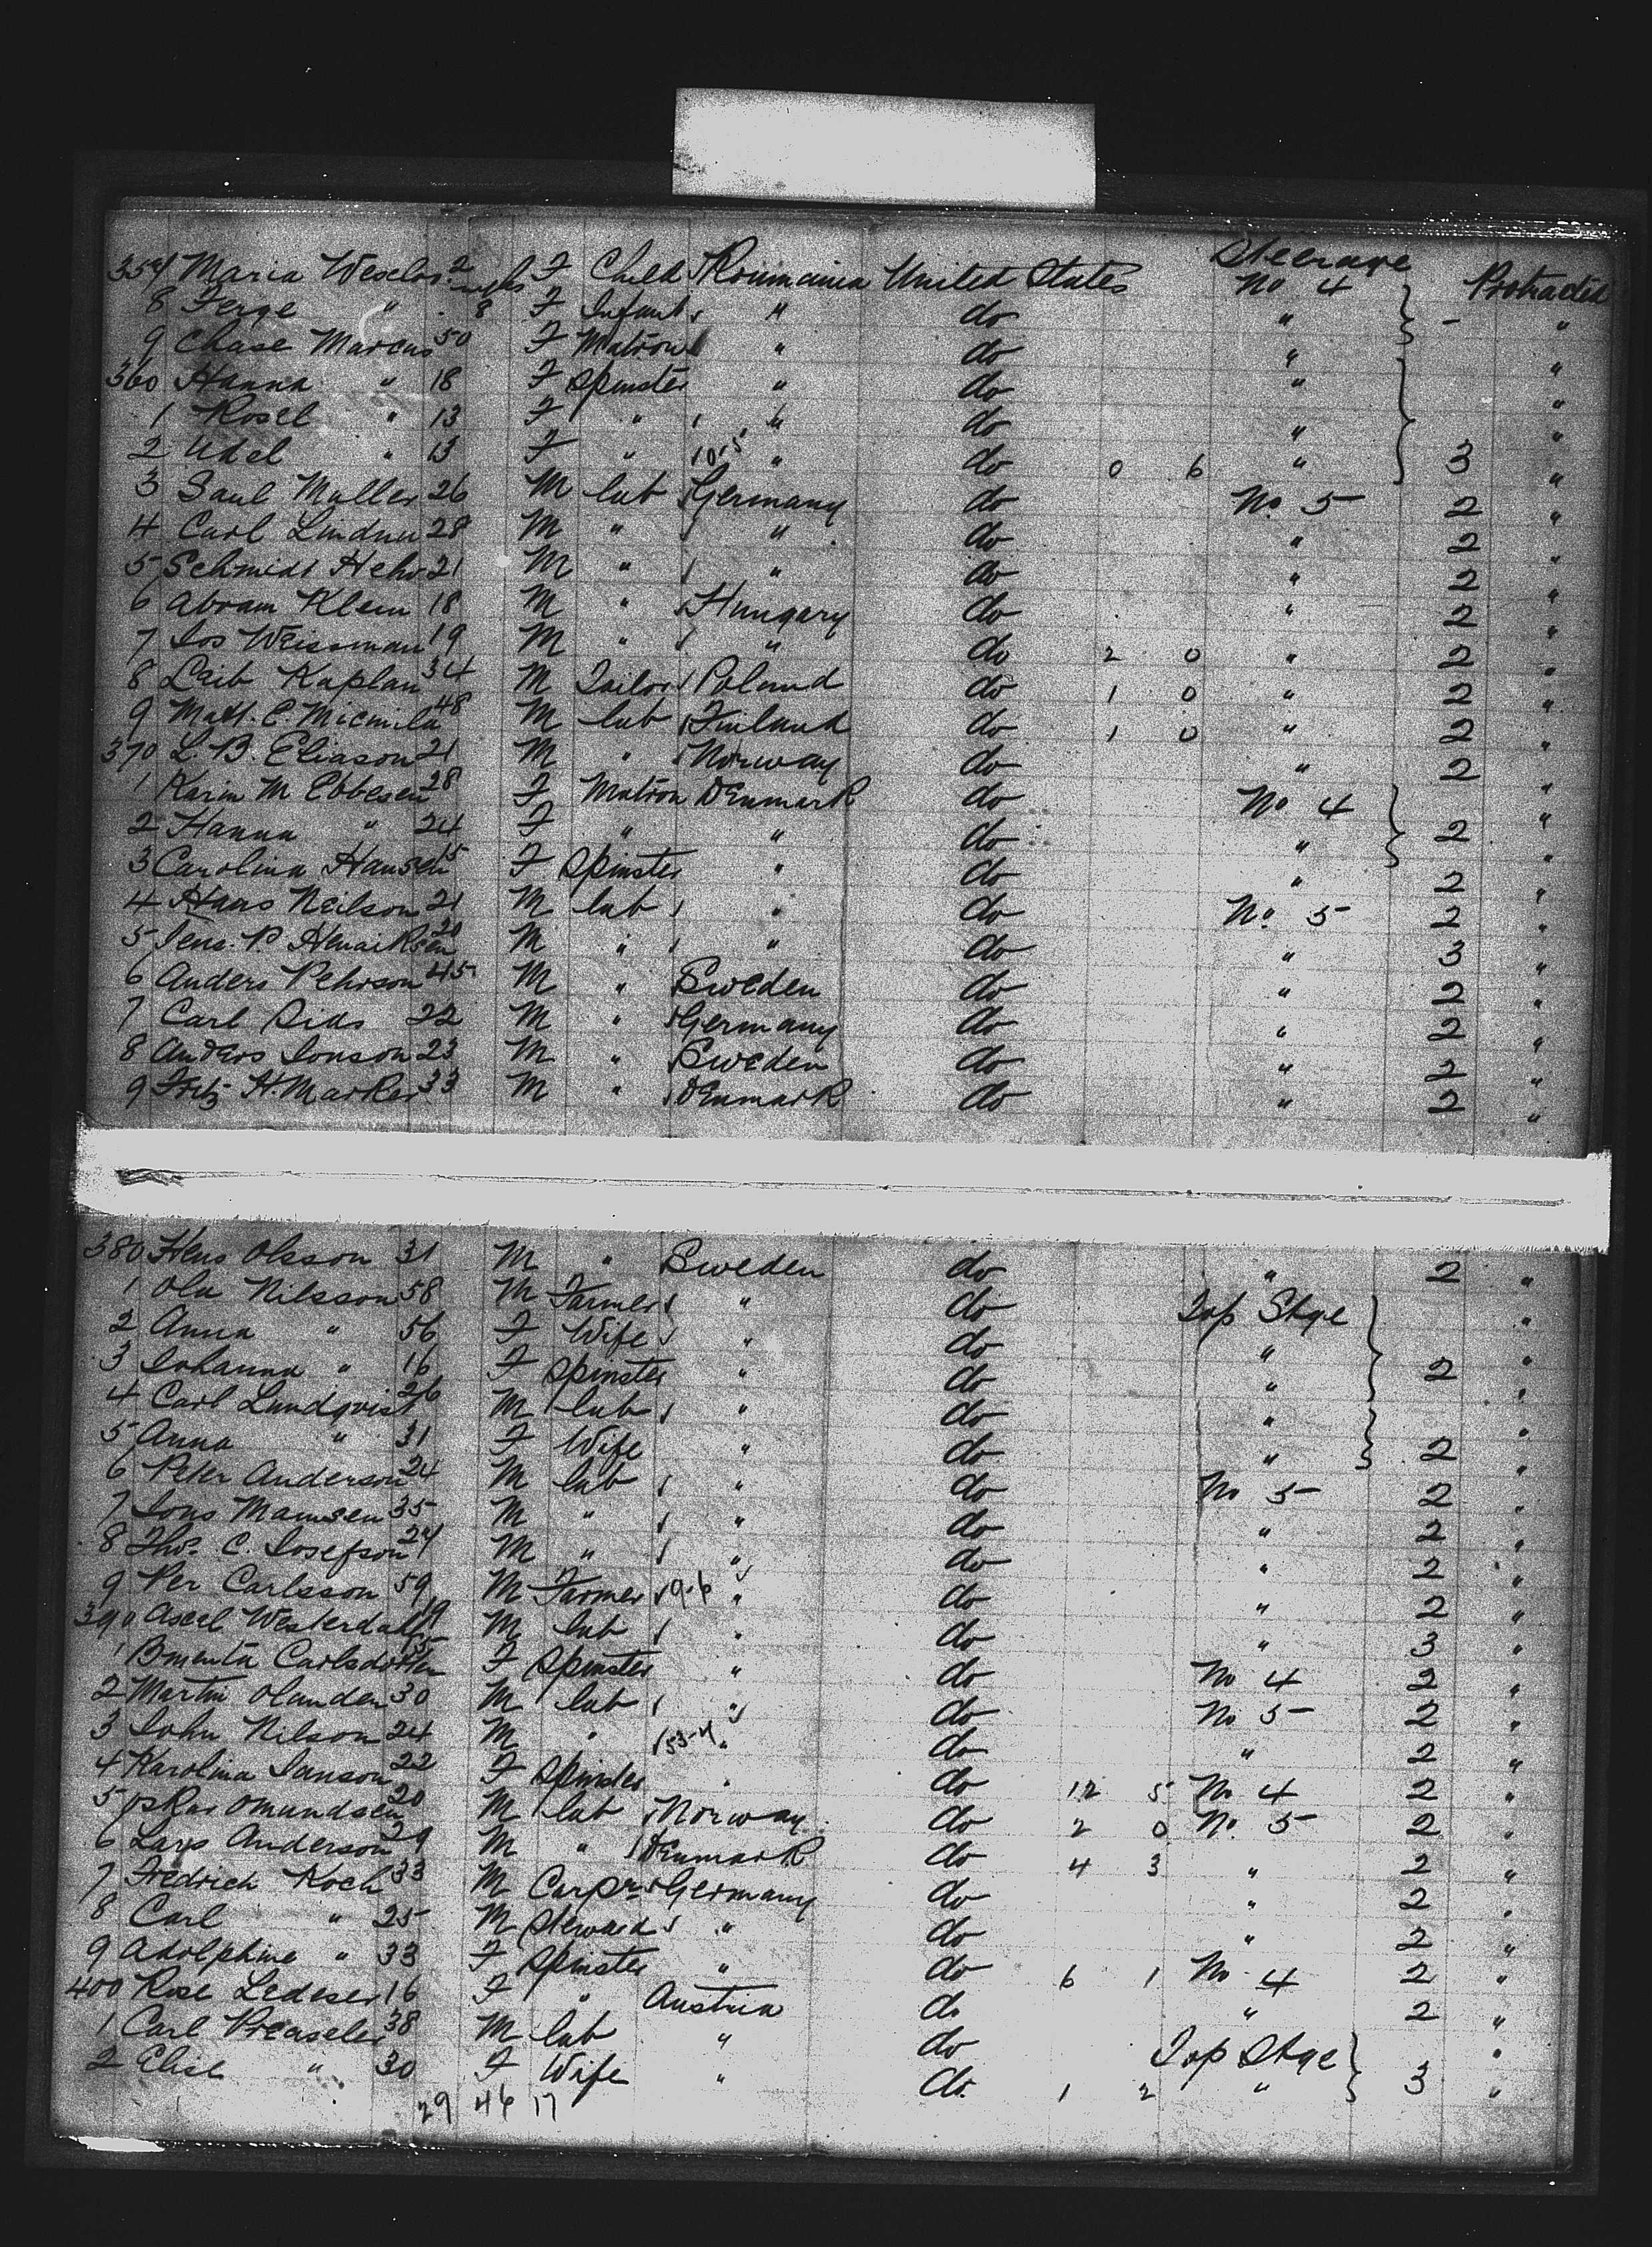 Steerage
354 Maria Wexelos 2 F Child Roumania United States No 4 Protracted
8 Ferge " 8 F Infant " do " - "
9 Chase Marcus 50 F Matron " do " "
360 Hanna " 18 F Spinster " do " "
1 Rosel " 13 F " " do " "
2 Udel " 13 F " 10-5 " do 0 6 " 3 "
3 Saul Muller 26 M lab Germany do No. 5 2 "
4 Carl Lindner 28 M " " do " 2 "
5 Schmidt Hehr 21 M " " do " 2 "
6 Abram Klein 18 M " Hungary do " 2 "
7 Jos Weissman 19 M " " do 2 0 " 2 "
8 Leib Kaplan 34 M Tailor Poland do 1 0 " 2 "
9 Matt. E. Micmila 48 M lab Finland do 1 0 " 2 "
370 L. B. Eliason 21 M " Norway do " 2 "
1 Karin M Ebbesen 28 F Matron Denmark do No 4 "
2 Hanna " 24 F " " do " 2 "
3 Carolina Hansen 15 F Spinster " do " 2 "
4 Hans Neilson 21 M lab " do No. 5 2 "
5 Jens. P. Henriksen 20 M " " do " 3 "
6 Anders Pehrson 45 M " Sweden do " 2 "
7 Carl Dids 22 M " Germany do " 2 "
8 Anders Jonson 23 M " Sweden do " 2 "
9 Fritz H. Marker 33 M " Denmark do " 2 "
380 Hens Olsson 31 M " Sweden do " 2 "
1 Ola Nilsson 58 M Farmer " do Top Stge "
2 Anna " 56 F Wife " do " "
3 Johanna " 16 F Spinster " do " 2 "
4 Carl Lundqvist 26 M lab " do " "
5 Anna " 31 F Wife " do " 2 "
6 Peter Anderson 24 M lab " do No 5 2 "
7 Jons Mamsen 35 M " " do " 2 "
8 Thos. C. Josefson 24 M " " do " 2 "
9 Per Carlsson 59 M Farmer 9-6 " do " 2 "
390 Axel Westerdahl 19 M lab " do " 3 "
1 Bmenta Carlsdotter 15 F Spinster " do No 4 2 "
2 Martin Olanden 30 M lab " do No 5 2 "
3 John Nilson 24 M " 53-4 " do " 2 "
4 Karolina Janson 22 F Spinster " do 12 5 No 4 2 "
5 Oskar Omundsen 20 M lab Norway do 2 0 No. 5 2 "
6 Lars Anderson 29 M " Denmark do 4 3 " 2 "
7 Fredrich Koch 33 M Carpr Germany do " 2 "
8 Carl " 25 M Steward " do " 2 "
9 Adolphine " 33 F Spinster " do 6 1 No. 4 2 "
400 Rose Lederer 16 F " Austria do " 2 "
1 Carl Preaseler 38 M lab " do Top Stge "
2 Elise " 30 F Wife " do 1 2 " 3 "
29 46 17